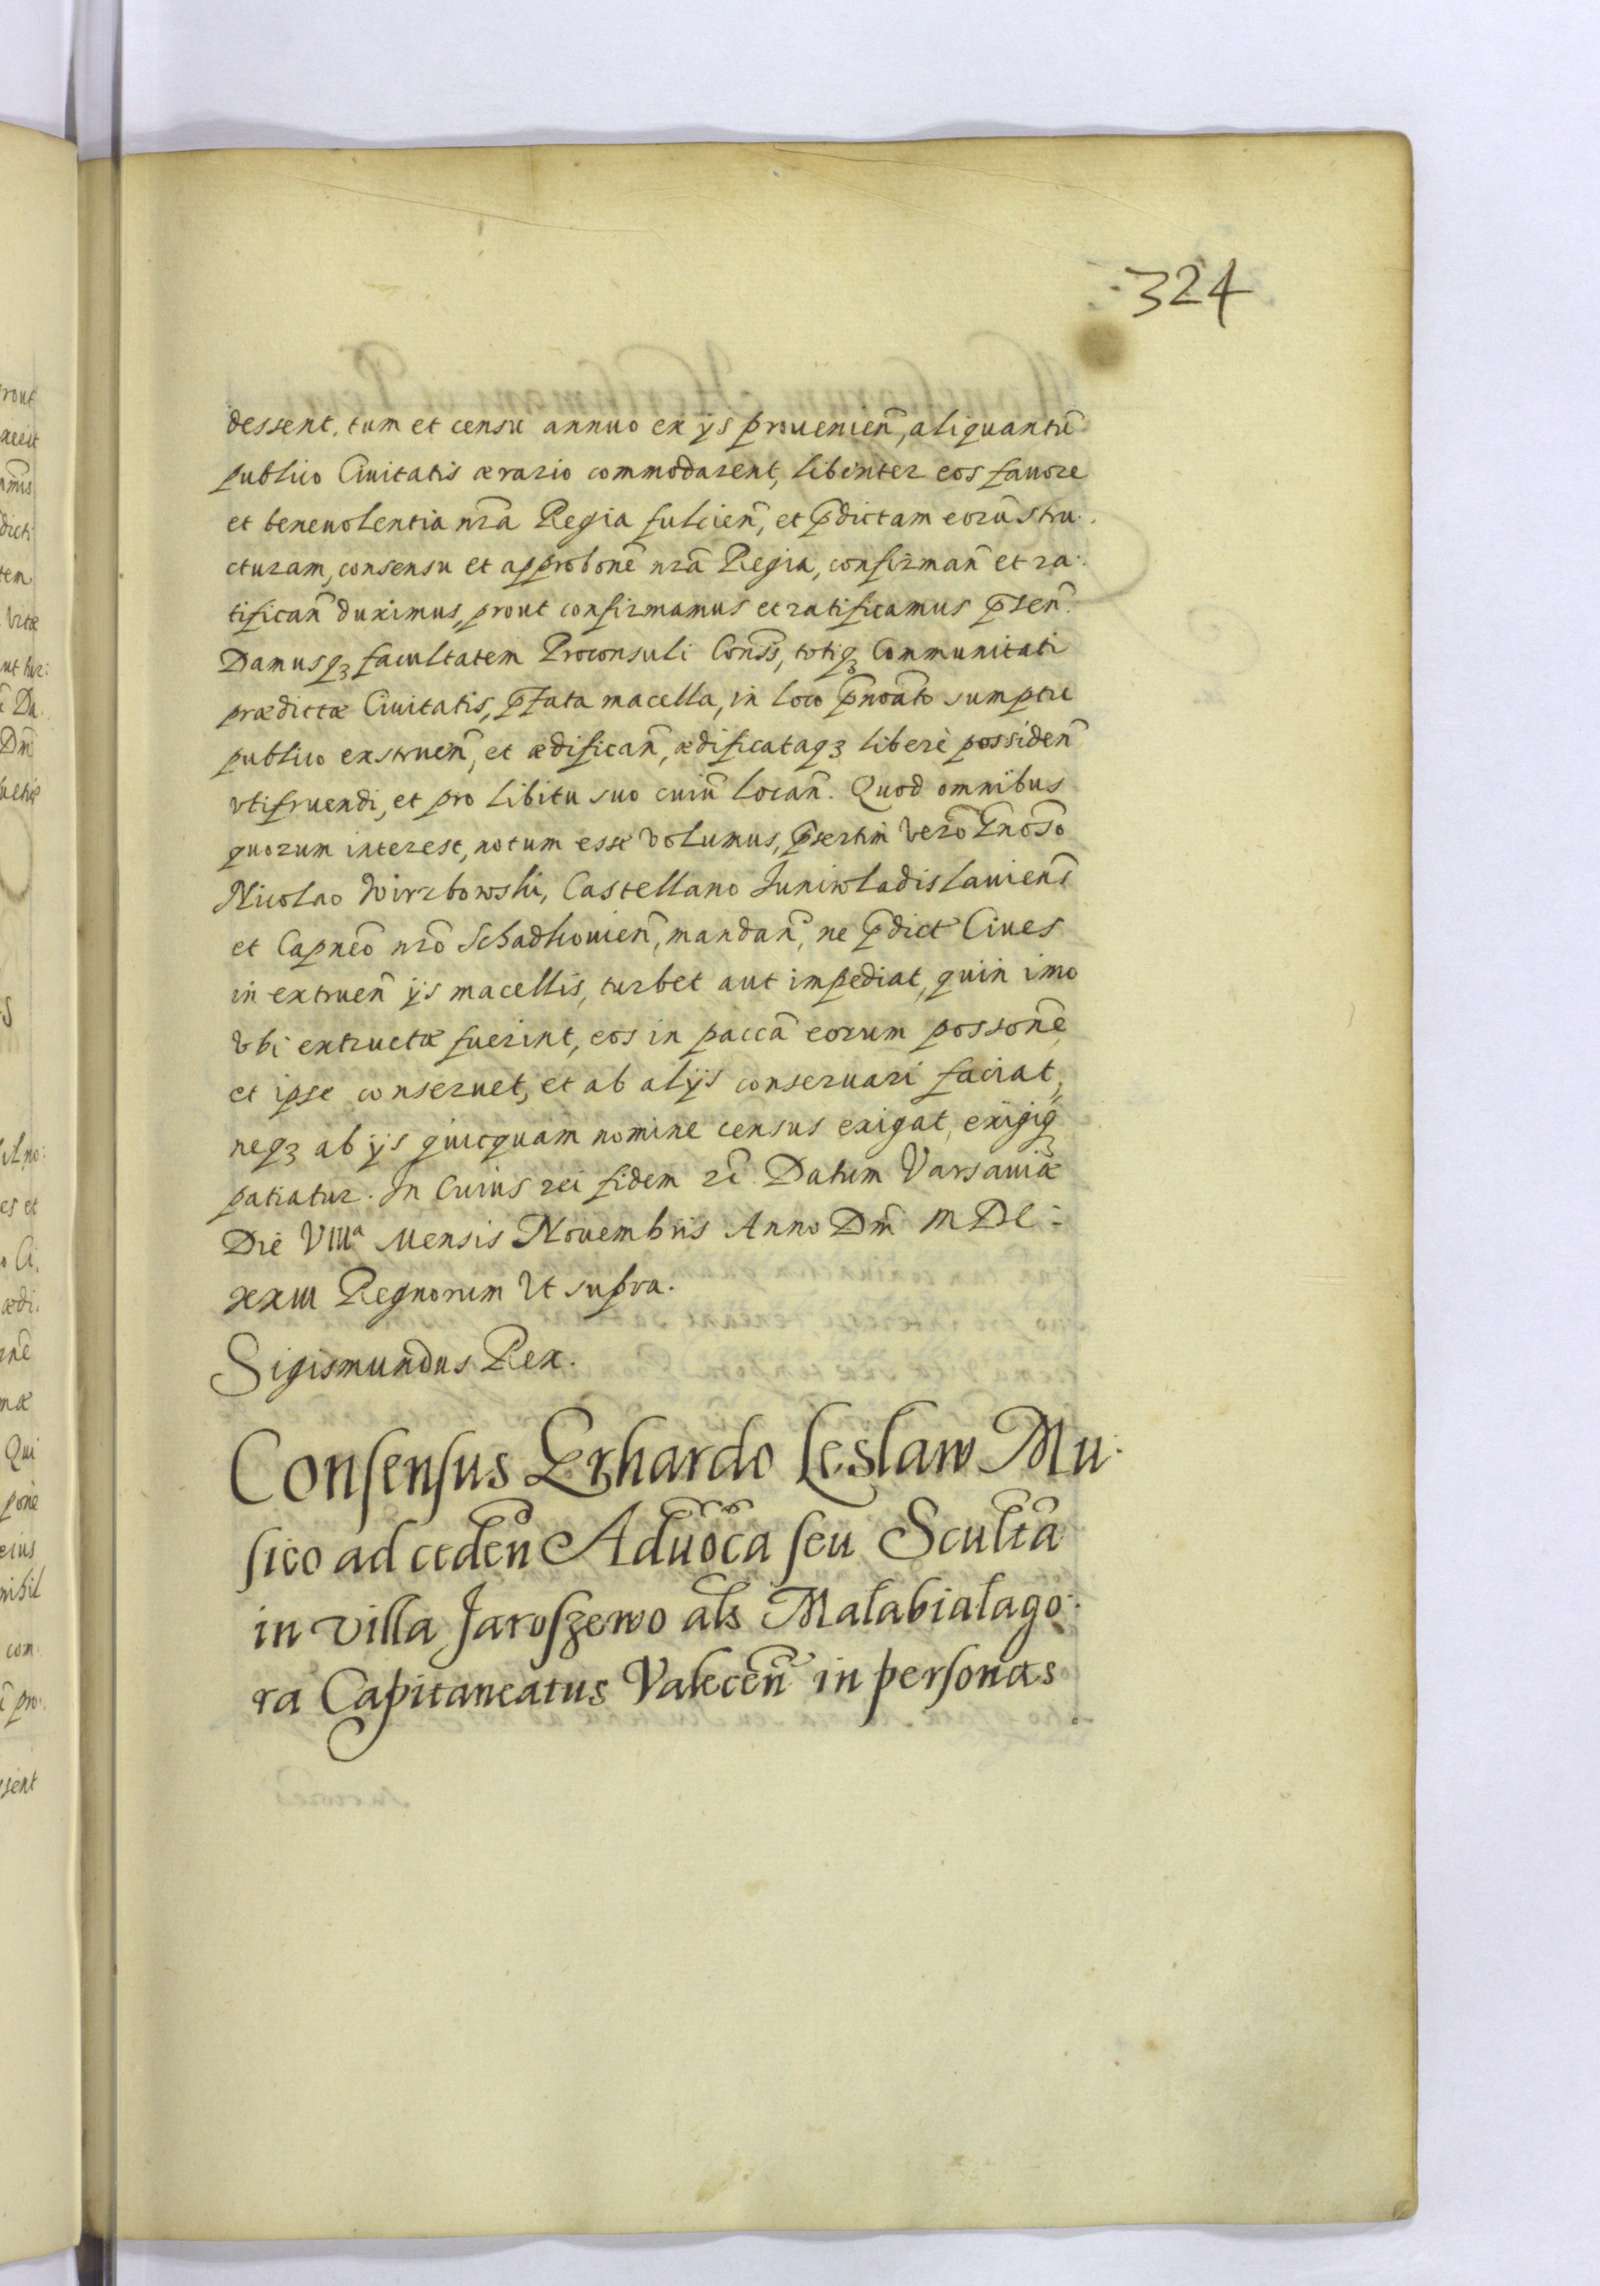 324
dessent, tum et censu annuo ex ijs prouenieñ, aliquantũ
publico Ciuitatis ærario commodarent, libenter eos fauore
et beneuolentia nr̃a Regia fulcieñ, et p̃dictam eorũ stru-
cturam, consensu et approbone nr̃a Regia, confirmañ et ra-
tificañ duximus, prout confirmamus et ratificamus p̃sen̄.
Damusq3 facultatem Proconsuli Conss̃, totiq3 Communitati
prædictæ Ciuitatis, p̃fata macella, in loco p̃noãto sumptu
publico exstrueñ, et ædificañ, ædificataq3 liberè possideñ
vtifruendi, et pro libitu suo cuiũ locañ. Quod omnibus
quorum interest, notum esse volumus, p̃sertim verò Gñoso
Nicolao Wirzbowski, Castellano Juniwladislauieñs
et Capneõ nr̃o Schadkouieñ, mandañ, ne p̃dict Ciues
in extrueñ ijs macellis, turbet aut impediat, quin imo
vbi extructæ fuerint, eos in paccã eorum possonẽ,
et ipse conseruet, et ab alijs conseruari faciat,
neq3 ab ijs quicquam nomine census exigat, exigiq3
patiatur. In Cuius rei fidem rc̃. Datum Varsauiæ
Die VIIIª Mensis Nouembris Anno Dm̃ MDC
xxiii Regnorum vt supra.
Sigismundus Rex.
Consensus Erhardo Leslaw Mu-
sico ad cedeñ Aduõca seu Scultã
in villa Jaroszewo als Malabialago-
ra Capitaneatus Valeceñ in personas